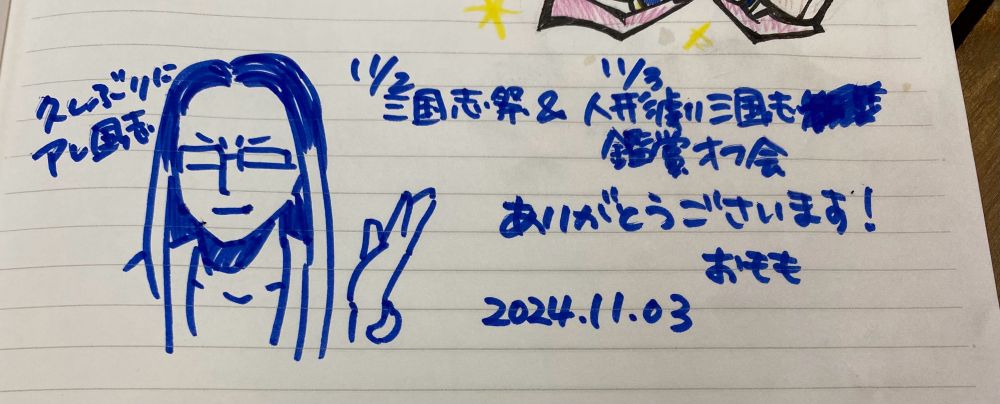 久しぶりに
アレ国志
11/2
三国志祭 &
11/3
人形劇三国志
鑑賞オフ会
ありがとうございます!
おもも
2024.11.03